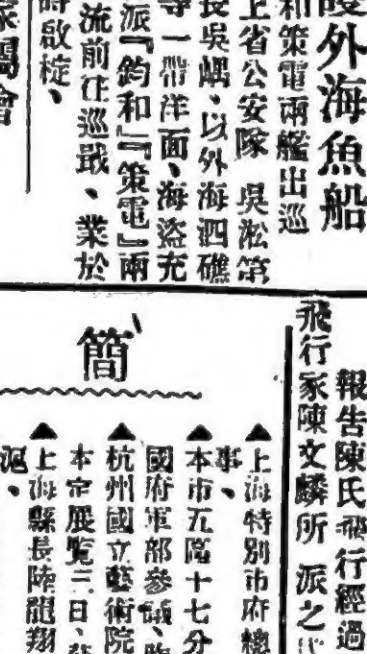 護外海魚船
和策電兩艦出巡
上省公安隊吳淞第
長吳嵎、以外海泗礁
等一帶洋面、海盜充
派『鈞和』『策電』兩
流前往巡戢、業於
時啟椗、
報告陳氏飛行經過
飛行家陳文麟所派之
簡
▲上海特別市府總
事、
▲本市五區十七分
國府軍部參
▲杭州國立藝術院
本定展覽三日、
▲上海縣長陸龍翔
滬、